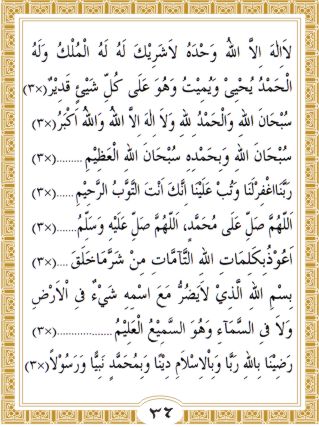 لاَاِلٰهَ اِلاَّ اللهُ وَحْدَهُ لاَشَرِيْكَ لَهُ لَهُ الْمُلْكُ وَلَهُ
الْحَمْدُ يُحْيِىْ وَيُمِيْتُ وَهُوَ عَلَى كُلِّ شَيْئٍ قَدِيْرٌ (×٣)
سُبْحَانَ اللهِ وَالْحَمْدُ لِلّٰهِ وَلاَ اِلٰهَ اِلاَّ اللهُ وَاللهُ اَكْبَرُ (×٣)
سُبْحَانَ اللهِ وَبِحَمْدِهِ سُبْحَانَ اللهِ الْعَظِيْمِ.........(×٣)
رَبَّنَااغْفِرْلَنَا وَتُبْ عَلَيْنَا اِنَّكَ اَنْتَ التَّوَّبُ الرَّحِيْمُ.....(×٣)
اَللّٰهُمَّ صَلِّ عَلَى مُحَمَّدٍ، اَللّٰهُمَّ صَلِّ عَلَيْهِ وَسَلِّمْ......(×٣)
اَعُوْذُبِكَلِمَاتِ اللهِ التَّآمَّاتِ مِنْ شَرِّمَاخَلَقَ....(×٣)
بِسْمِ اللهِ الَّذِيْ لاَيَضُرُّ مَعَ اسْمِهِ شَيْءٌ فِى الْاَرْضِ
وَلاَ فِى السَّمَآءِ وَهُوَ السَّمِيْعُ الْعَلِيْمُ................(×٣)
رَضِيْنَا بِاللهِ رَبًّا وَبِالْاِسْلَامِ دِيْنًا وَبِمُحَمَّدٍ نَبِيًّا وَرَسُوْلاً(×٣)
٣٤